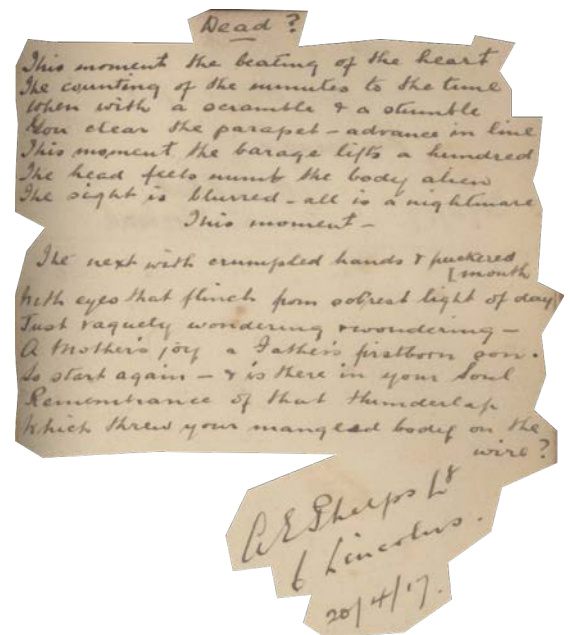 Dead?
This moment the beating of the heart
The counting of the minutes to the time
When with a scramble & a stumble
You clear the parapet - advance in line
This moment the barage lifts a hundred
The head feels numb the body alien
The sight is blurred - all is a nightmare
This moment -
The next with crumpled hands & puckered
[mouth
With eyes that flinch from sobrest light of day
Just vaguely wondering & wondering -
A Mother's joy a Father's firstborn son.
So start again - & is there in your Soul
Remembrance of that thunderclap
Which threw your mangled body on the
wire?
A E Phelps Lt
6 Lincolns.
20/4/17.